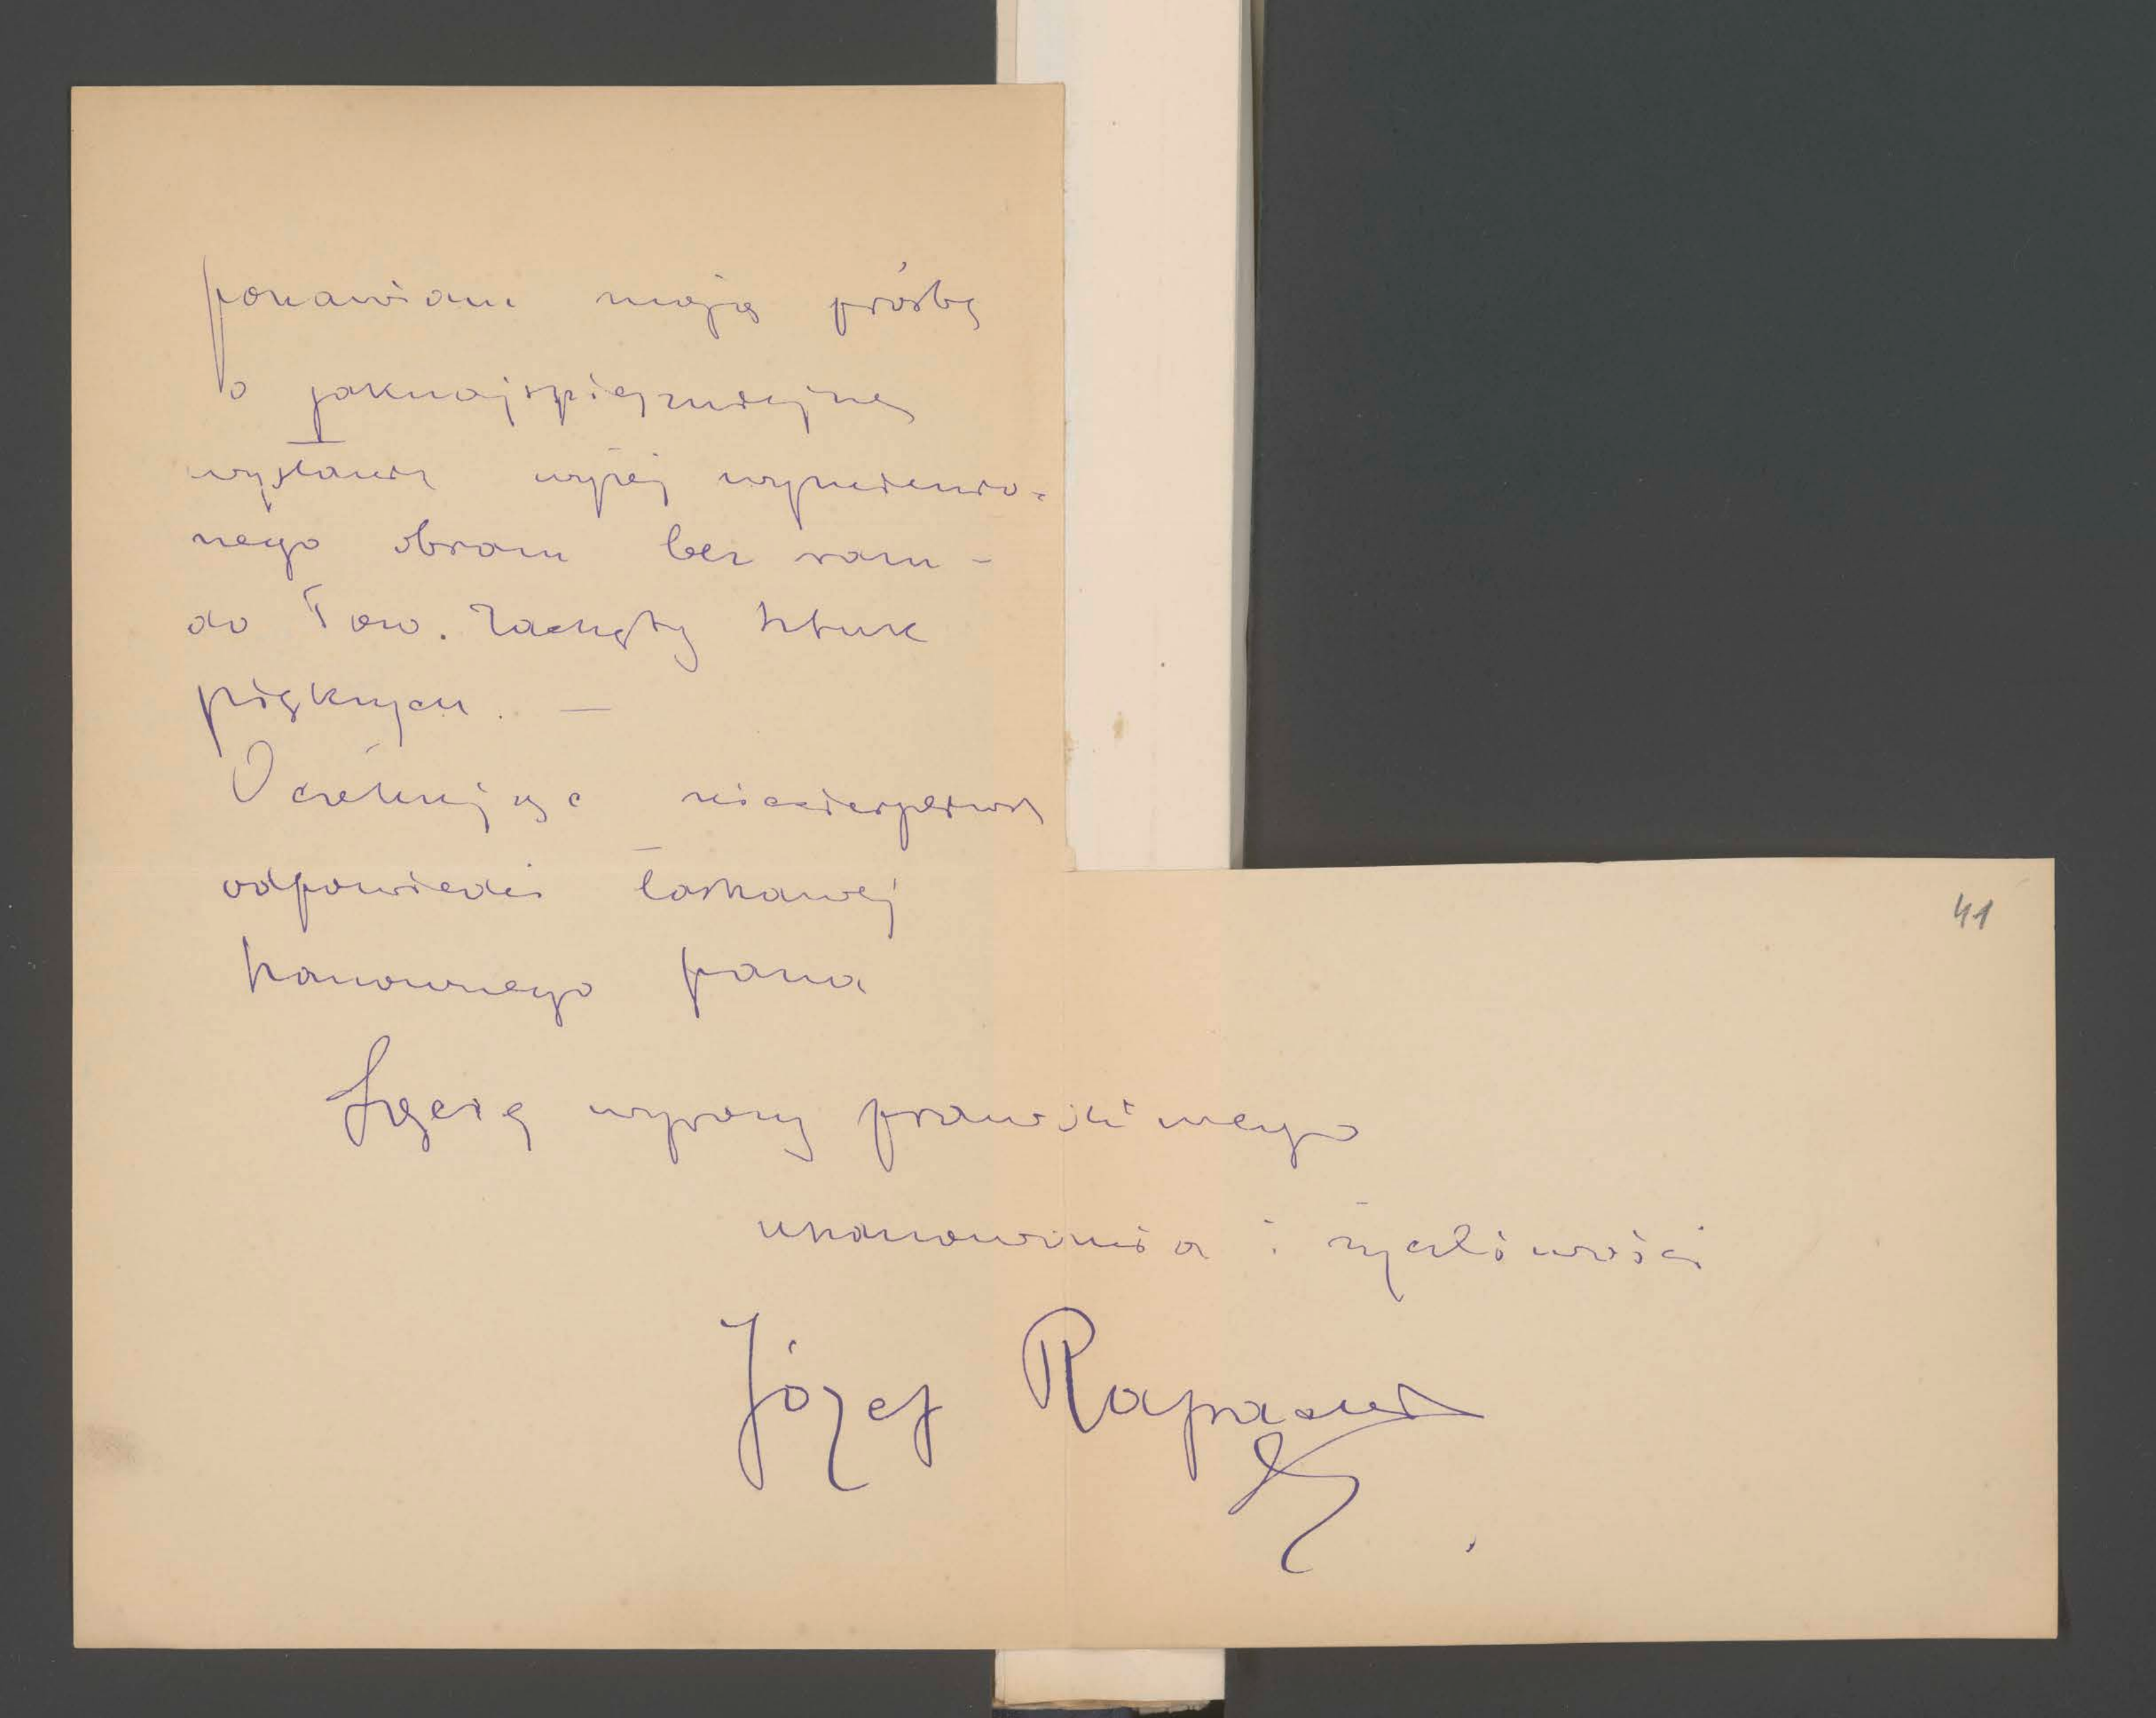 ponawiam moją prośbę
o jaknajspieszniejsze
wysłanie wyżej wymienio-
nego obrazu bez ram -
do Tow. Zachęty sztuk
pięknych. —
Oczekując niecierpliwie
odpowiedzi łaskawej
szanownego pana
Łączę wyrazy prawdziwego
uszanowania i życzliwości
Józef Rapacki
41